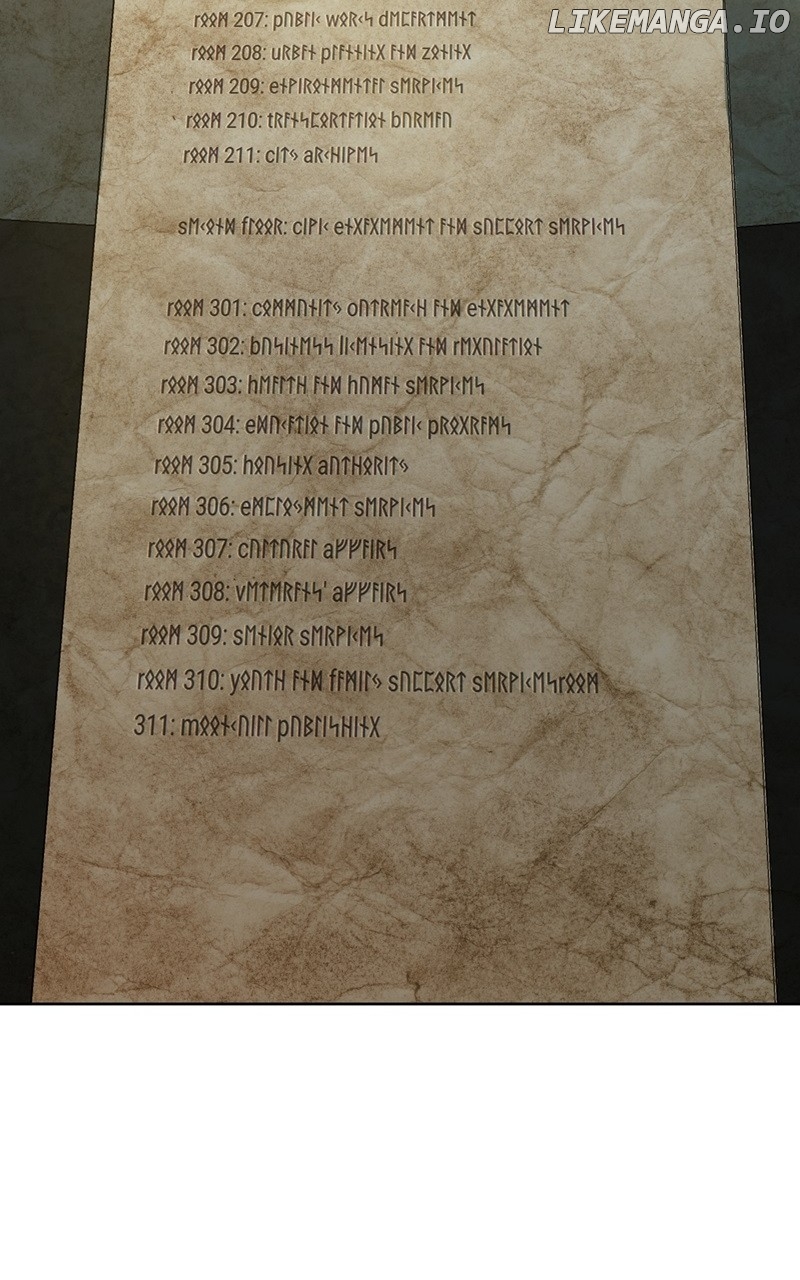 LIKEMANGA.IO
rᛟᛟᛗ 207: pᚢᛒᛚᛁᚲ wᛟᚱᚲᛋ dᛖᛈᚨᚱᛏᛗᛖᚾᛏ
rᛟᛟᛗ 208: uᚱᛒᚨᚾ pᛚᚨᚾᚾᛁᚾᚷ ᚨᚾᛞ zᛟᚾᛁᚾᚷ
rᛟᛟᛗ 209: eᚾᚹᛁᚱᛟᚾᛗᛖᚾᛏᚨᛚ sᛖᚱᚹᛁᚲᛖᛋ
rᛟᛟᛗ 210: tᚱᚨᚾᛋᛈᛟᚱᛏᚨᛏᛁᛟᚾ bᚢᚱᛖᚨᚢ
rᛟᛟᛗ 211: cᛁᛏᛃ aᚱᚲᚺᛁᚹᛖᛋ
sᛖᚲᛟᚾᛞ fᛚᛟᛟᚱ: cᛁᚹᛁᚲ eᚾᚷᚨᚷᛖᛗᛖᚾᛏ ᚨᚾᛞ sᚢᛈᛈᛟᚱᛏ sᛖᚱᚹᛁᚲᛖᛋ
rᛟᛟᛗ 301: cᛟᛗᛗᚢᚾᛁᛏᛃ oᚢᛏᚱᛖᚨᚲᚺ ᚨᚾᛞ eᚾᚷᚨᚷᛖᛗᛖᚾᛏ
rᛟᛟᛗ 302: bᚢᛋᛁᚾᛖᛋᛋ lᛁᚲᛖᚾᛋᛁᚾᚷ ᚨᚾᛞ rᛖᚷᚢᛚᚨᛏᛁᛟᚾ
rᛟᛟᛗ 303: hᛖᚨᛚᛏᚺ ᚨᚾᛞ hᚢᛗᚨᚾ sᛖᚱᚹᛁᚲᛖᛋ
rᛟᛟᛗ 304: eᛞᚢᚲᚨᛏᛁᛟᚾ ᚨᚾᛞ pᚢᛒᛚᛁᚲ pᚱᛟᚷᚱᚨᛗᛋ
rᛟᛟᛗ 305: hᛟᚢᛋᛁᚾᚷ aᚢᛏᚺᛟᚱᛁᛏᛃ
rᛟᛟᛗ 306: eᛗᛈᛚᛟᛃᛗᛖᚾᛏ sᛖᚱᚹᛁᚲᛖᛋ
rᛟᛟᛗ 307: cᚢᛚᛏᚢᚱᚨᛚ aᚠᚠᚨᛁᚱᛋ
rᛟᛟᛗ 308: vᛖᛏᛖᚱᚨᚾᛋ' aᚠᚠᚨᛁᚱᛋ
rᛟᛟᛗ 309: sᛖᚾᛁᛟᚱ sᛖᚱᚹᛁᚲᛖᛋ
rᛟᛟᛗ 310: yᛟᚢᛏᚺ ᚨᚾᛞ fᚨᛗᛁᛚᛃ sᚢᛈᛈᛟᚱᛏ sᛖᚱᚹᛁᚲᛖᛋrᛟᛟᛗ
311: mᛟᛟᚾᚲᚢᛁᛚᛚ pᚢᛒᛚᛁᛋᚺᛁᚾᚷ